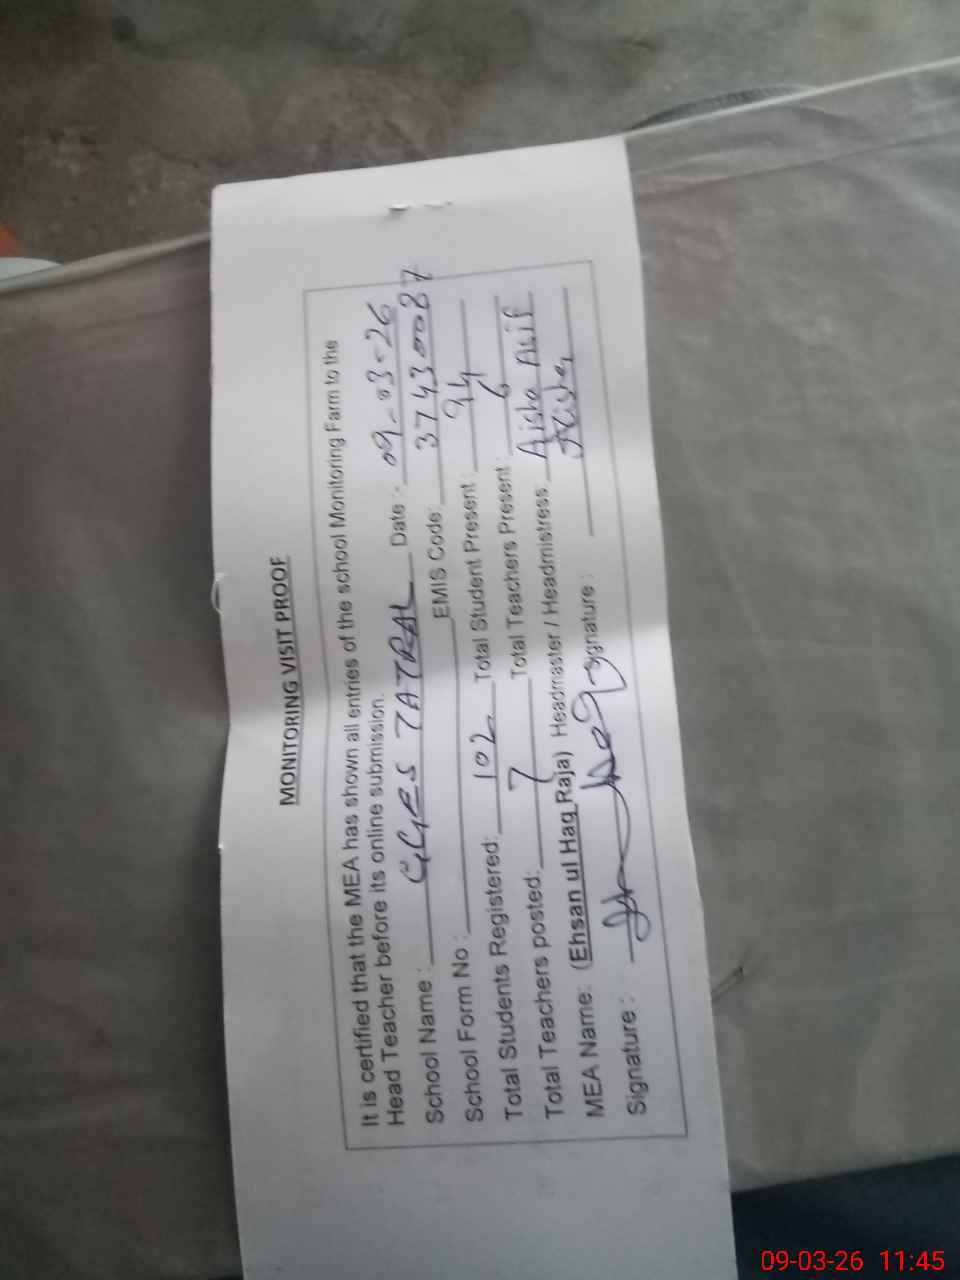 MONITORING VISIT PROOF
It is certified that the MEA has shown all entries of the school Monitoring Farm to the
Head Teacher before its online submission.
School Name : GGES TATRAL Date :- 09-03-26
School Form No : EMIS Code: 37430087
Total Students Registered: 102 Total Student Present : 94
Total Teachers posted: 7 Total Teachers Present : 6
MEA Name: (Ehsan ul Haq Raja) Headmaster / Headmistress: Aisha Asif
Signature : Signature : Aisha
09-03-26 11:45